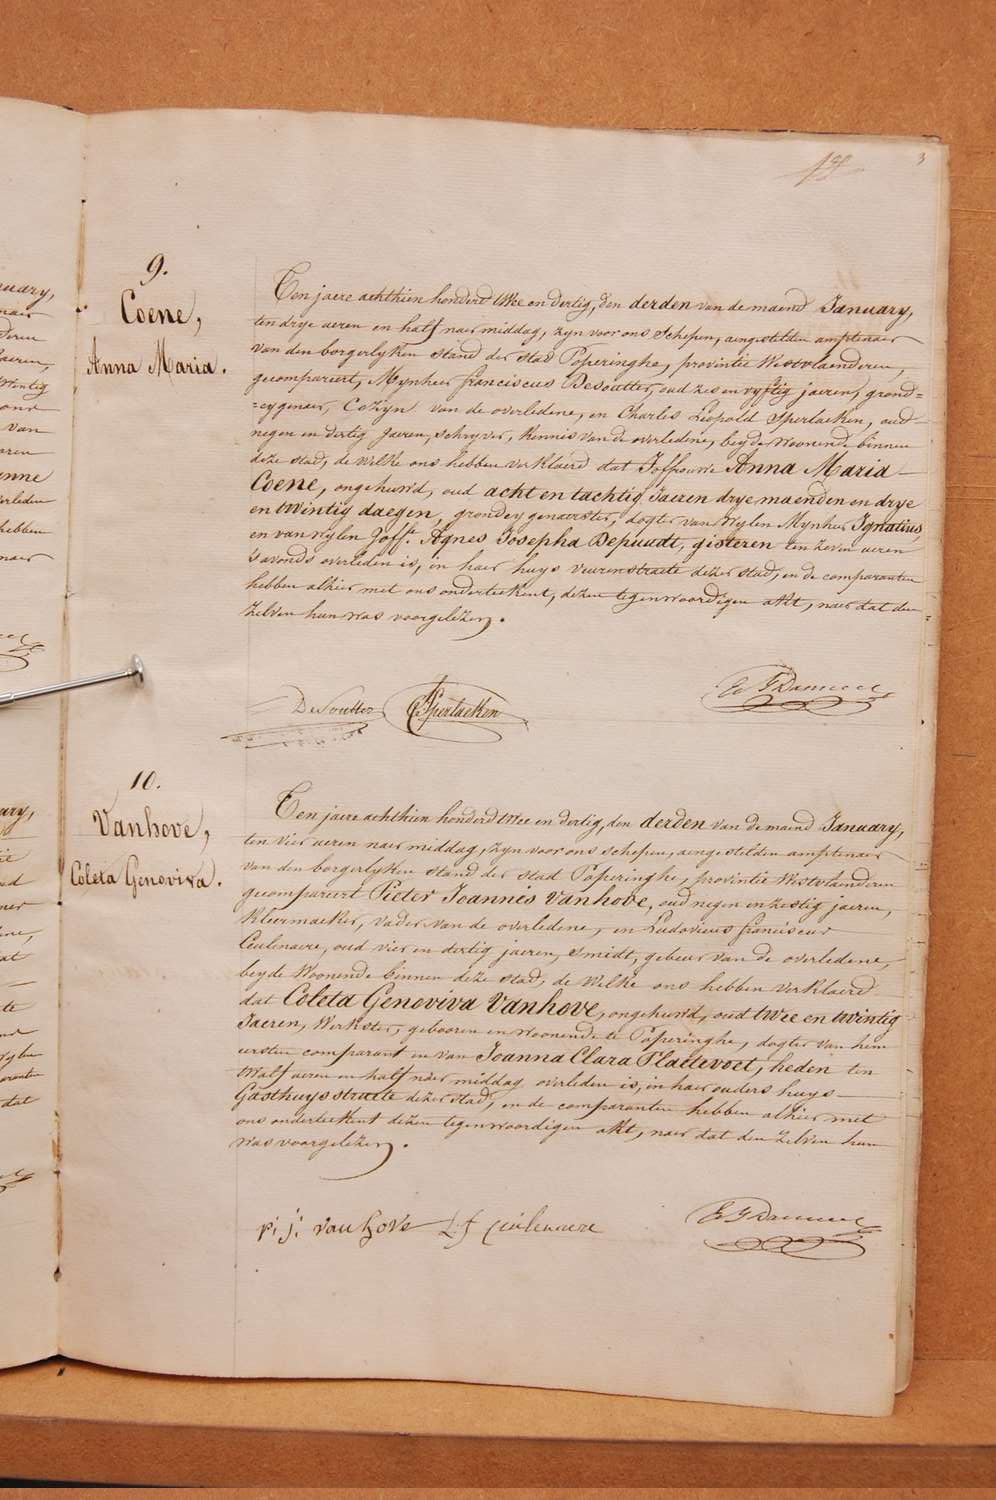 3
9.
Coene,
Anna Maria.
Ten jaere achthien honderd twee en dertig, den derden van de maend January,
ten drye ueren en half naer middag, zyn voor ons Schepen, aengestelden amptenaer
van den borgerlyken stand der stad Poperinghe, provintie Westvlaenderen,
gecompareert, Mynheer franciscus Desoutter, oud zes en vyftig jaeren, grond=
=eygenaer, Cozyn van de overledene, en Charles Leopold Sperlaeken, oud
negen en dertig Jaeren, schryver, kennis van de overledene, beyde woonende binnen
deze stad, de welke ons hebben verklaerd dat Joffrouwe Anna Maria
Coene, ongehuwd, oud acht en tachtig Jaeren drye maenden en drye
en twintig daegen, grondeygenaerster, dogter van wylen Mynheer Ignatius,
en van wylen Joffe. Agnes Josepha Depuudt, gisteren ten zeven ueren
's avonds overleden is, in haer huys vuurenstraete dezer stad, en de comparanten
hebben alhier met ons onderteekent, dezen tegenwoordigen akt, naer dat den
zelven hun was voorgelezen.
DeSoutter CSperlaeken
10.
Vanhove,
Coleta Genoviva.
Ten jaere achthien honderd twee en dertig, den derden van de maend January,
ten vier ueren naer middag, zyn voor ons schepen, aengestelden amptenaer
van den borgerlyken stand der stad Poperinghe, provintie Westvlaenderen
gecompareert Pieter Joannes Vanhove, oud negen en zestig jaeren,
kleermaeker, vader van de overledene, en Ludovicus franciscus
Ceulenaere, oud vier en dertig jaeren, smidt, gebuer van de overledene,
beyde woonende binnen deze stad, de welke ons hebben verklaerd
dat Coleta Genoviva Vanhove, ongehuwd, oud twee en twintig
Jaeren, werkster, gebooren en woonende te Poperinghe, dogter van hem
eersten comparant en van Joanna Clara Plaetevoet, heden ten
twalf ueren en half naer middag overleden is, in haer ouders huys
Gasthuysstraete dezer stad, en de comparanten hebben alhier met
ons onderteekent dezen tegenwoordigen akt, naer dat den zelven hun
was voorgelezen.
p: j: van hove L: f Ceulenaere